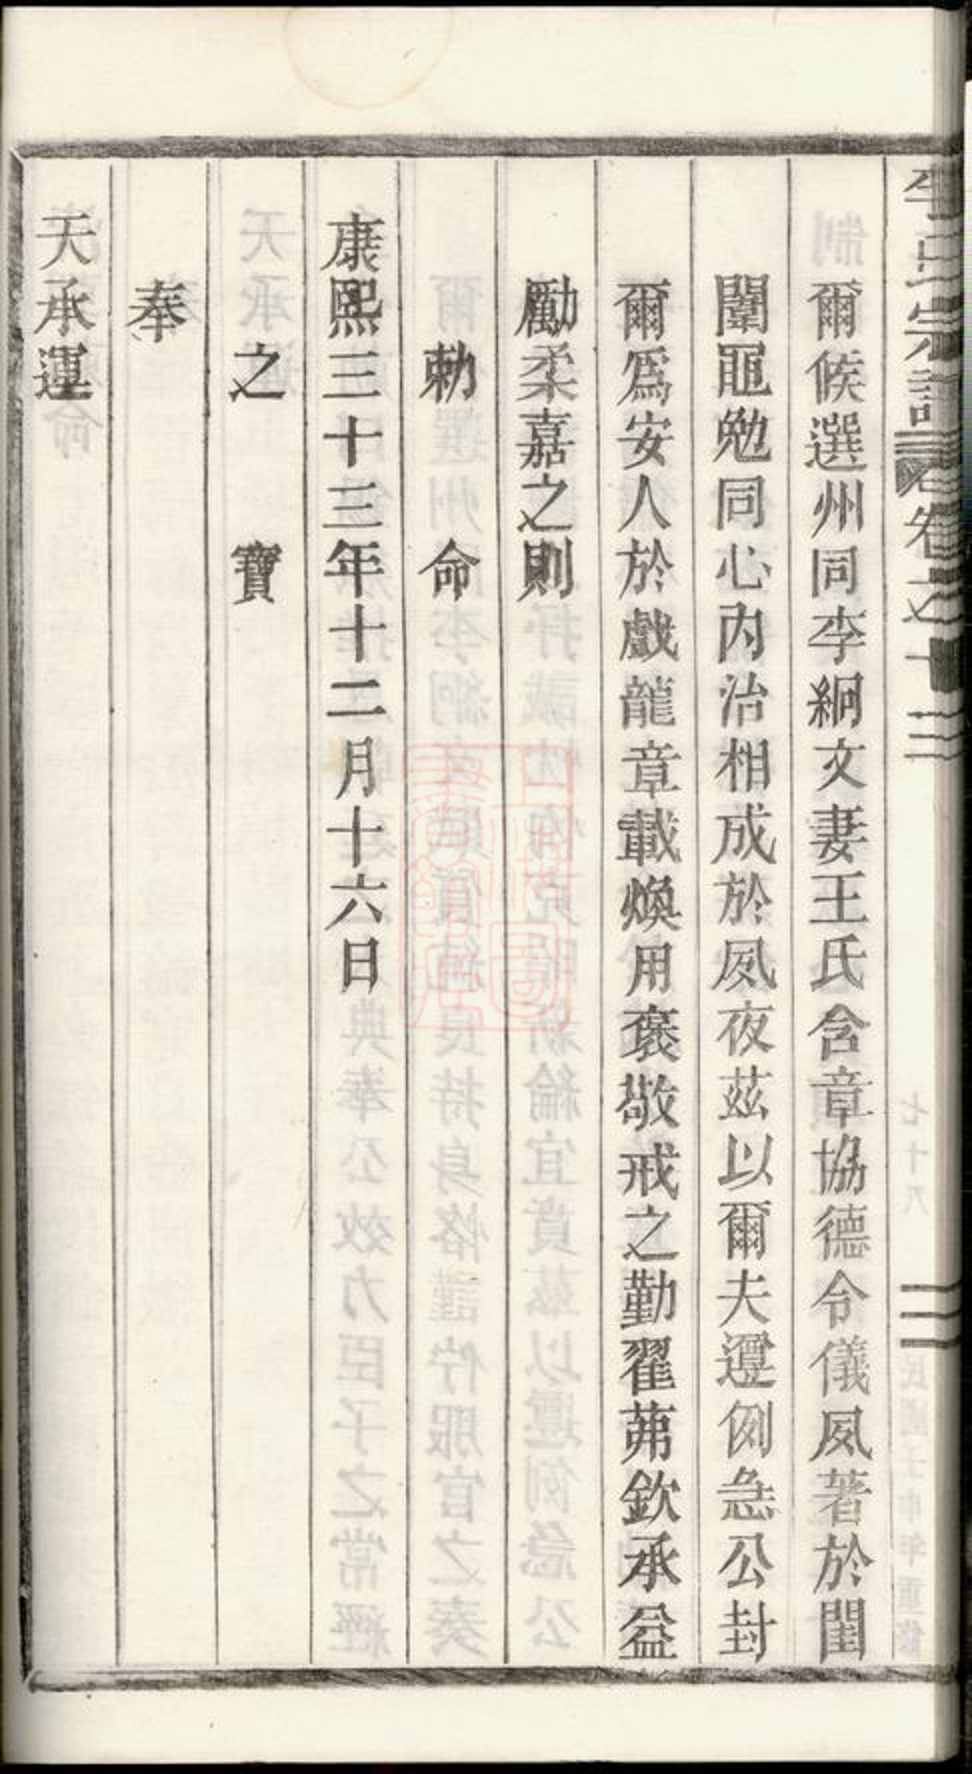 李氏宗譜 卷之十
爾候選州同李絅文妻王氏含章協德令儀夙著於閨
闈黽勉同心內治相成於夙夜茲以爾夫遵例急公封
爾爲安人於戲龍章載煥用褒敬戒之勤翟茀欽承益
勵柔嘉之則
勅命
康熙三十三年十二月十六日
之寶
奉
天承運